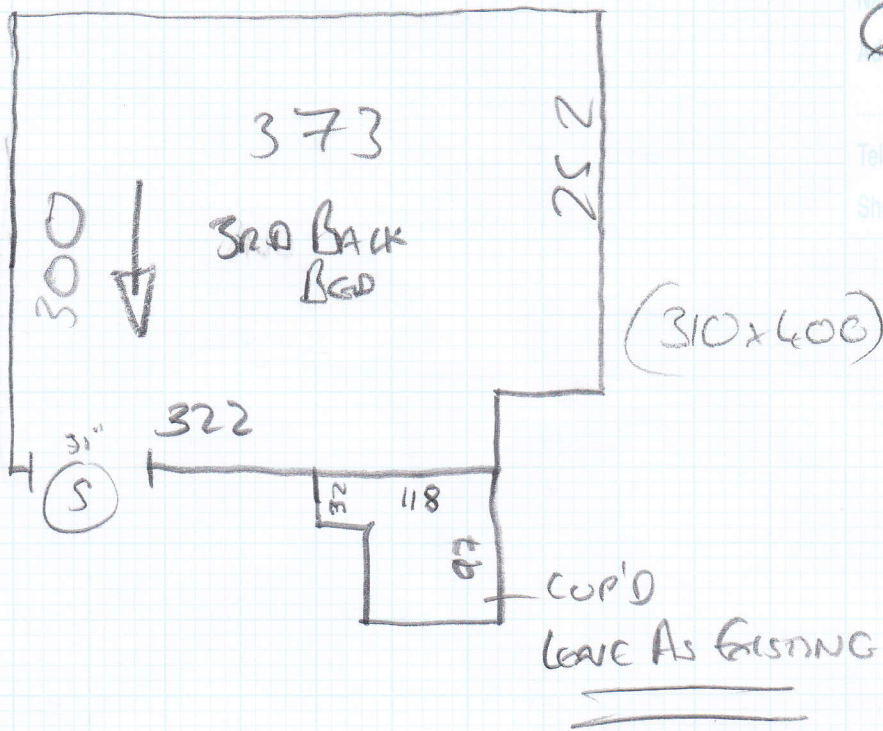 373
252
300
3RD BACK
BGD
(310 x 400)
322
31"
S
32
118
97
CUP'D
LEAVE AS EXISTING
Tel
Sh